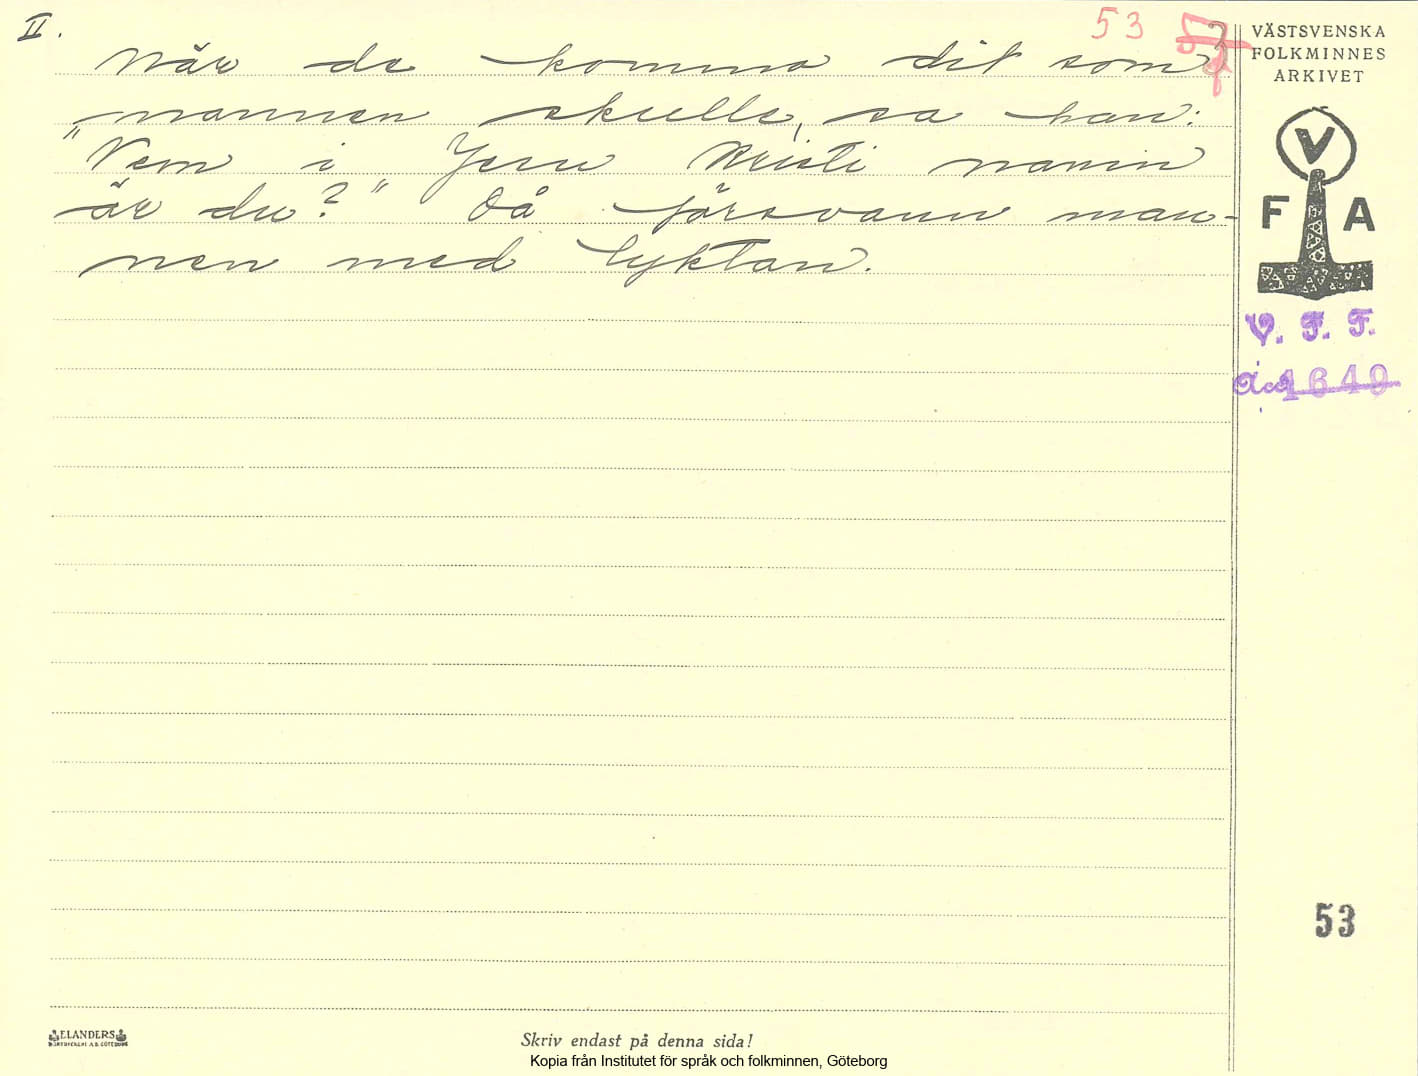 II.
53
När de komma dit som
mannen skulle, sa han:
"Vem i Jesu Kristi namn
är du?" Då försvann man-
nen med lyktan.
VÄSTSVENSKA
FOLKMINNES
ARKIVET
V
F A
V. F. F.
Acc 1640
53
ELANDERS
BOKTRYCKERI A.B. GÖTEBORG
Skriv endast på denna sida!
Kopia från Institutet för språk och folkminnen, Göteborg